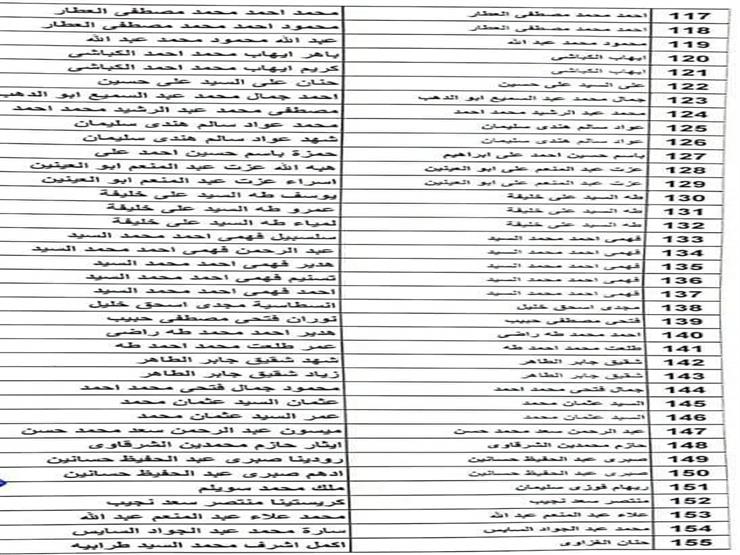 117 احمد محمد مصطفى العطار محمد احمد محمد مصطفى العطار
118 احمد محمد مصطفى العطار محمود احمد محمد مصطفى العطار
119 محمود محمد عبد الله عبد الله محمود محمد عبد الله
120 ايهاب الكباشى باهر ايهاب محمد احمد الكباشى
121 ايهاب الكباشى كريم ايهاب محمد احمد الكباشى
122 على السيد على حسين حنان على السيد على حسين
123 جمال محمد عبد السميع ابو الدهب احمد جمال محمد عبد السميع ابو الدهب
124 محمد عبد الرشيد محمد احمد مصطفى محمد عبد الرشيد محمد احمد
125 عواد سالم هندى سليمان محمد عواد سالم هندى سليمان
126 عواد سالم هندى سليمان شهد عواد سالم هندى سليمان
127 باسم حسين احمد على ابراهيم حمزة باسم حسين احمد على
128 عزت عبد المنعم على ابو العينين هبه الله عزت عبد المنعم ابو العينين
129 عزت عبد المنعم على ابو العينين اسراء عزت عبد المنعم ابو العينين
130 طه السيد على خليفة يوسف طه السيد على خليفة
131 طه السيد على خليفة عمرو طه السيد على خليفة
132 طه السيد على خليفة لمياء طه السيد على خليفة
133 فهمى احمد محمد السيد سلسبيل فهمى احمد محمد السيد
134 فهمى احمد محمد السيد عبد الرحمن فهمى احمد محمد السيد
135 فهمى احمد محمد السيد هدير فهمى احمد محمد السيد
136 فهمى احمد محمد السيد تسنيم فهمى احمد محمد السيد
137 فهمى احمد محمد السيد احمد فهمى احمد محمد السيد
138 مجدى اسحق خليل انسطاسية مجدى اسحق خليل
139 فتحى مصطفى حبيب نوران فتحى مصطفى حبيب
140 احمد محمد طه راضى هدير احمد محمد طه راضى
141 طلعت محمد احمد طه عمر طلعت محمد احمد طه
142 شقيق جابر الطاهر شهد شقيق جابر الطاهر
143 شقيق جابر الطاهر زياد شقيق جابر الطاهر
144 جمال فتحى محمد احمد محمود جمال فتحى محمد احمد
145 السيد عثمان محمد عثمان السيد عثمان محمد
146 السيد عثمان محمد عمر السيد عثمان محمد
147 عبد الرحمن سعد محمد حسن ميسون عبد الرحمن سعد محمد حسن
148 حازم محمدين الشرقاوى ايثار حازم محمدين الشرقاوى
149 صبرى عبد الحفيظ حسانين رودينا صبرى عبد الحفيظ حسانين
150 صبرى عبد الحفيظ حسانين ادهم صبرى عبد الحفيظ حسانين
151 ريهام فوزى سليمان ملك محمد سويلم
152 منتصر سعد نجيب كريستينا منتصر سعد نجيب
153 علاء عبد المنعم عبد الله محمد علاء عبد المنعم عبد الله
154 محمد عبد الجواد السايس سارة محمد عبد الجواد السايس
155 حنان الغزاوى اكمل اشرف محمد السيد طرابيه